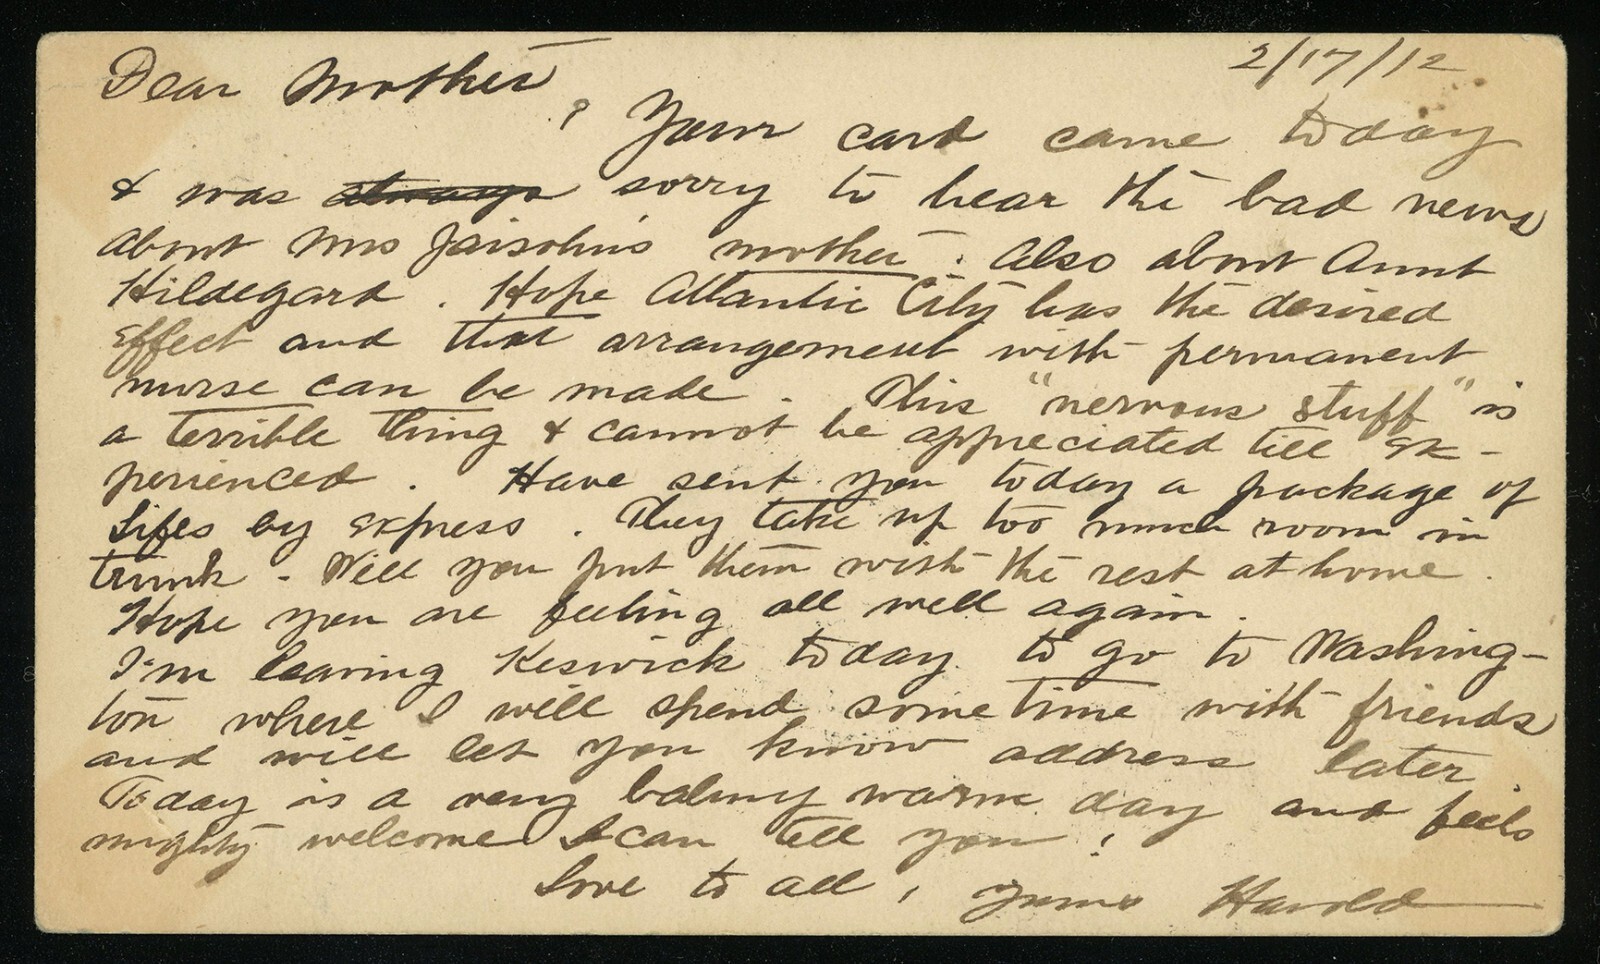 2/17/12
Dear Mother,
Your card came today
& was always sorry to hear the bad news
about Mrs Jaisohn's mother. Also about Aunt
Hildegard. Hope Atlantic City has the desired
effect and that arrangement with permanent
nurse can be made. This "nervous stuff" is
a terrible thing & cannot be appreciated till ex-
perienced. Have sent you today a package of
Lifes by express. They take up too much room in
trunk - Will you put them with the rest at home.
Hope you are feeling all well again.
I'm leaving Keswick today to go to Washing-
ton where I will spend some time with friends
and will let you know address later.
Today is a very balmy warm day and feels
mighty welcome I can tell you!
Love to all, Yours Harold